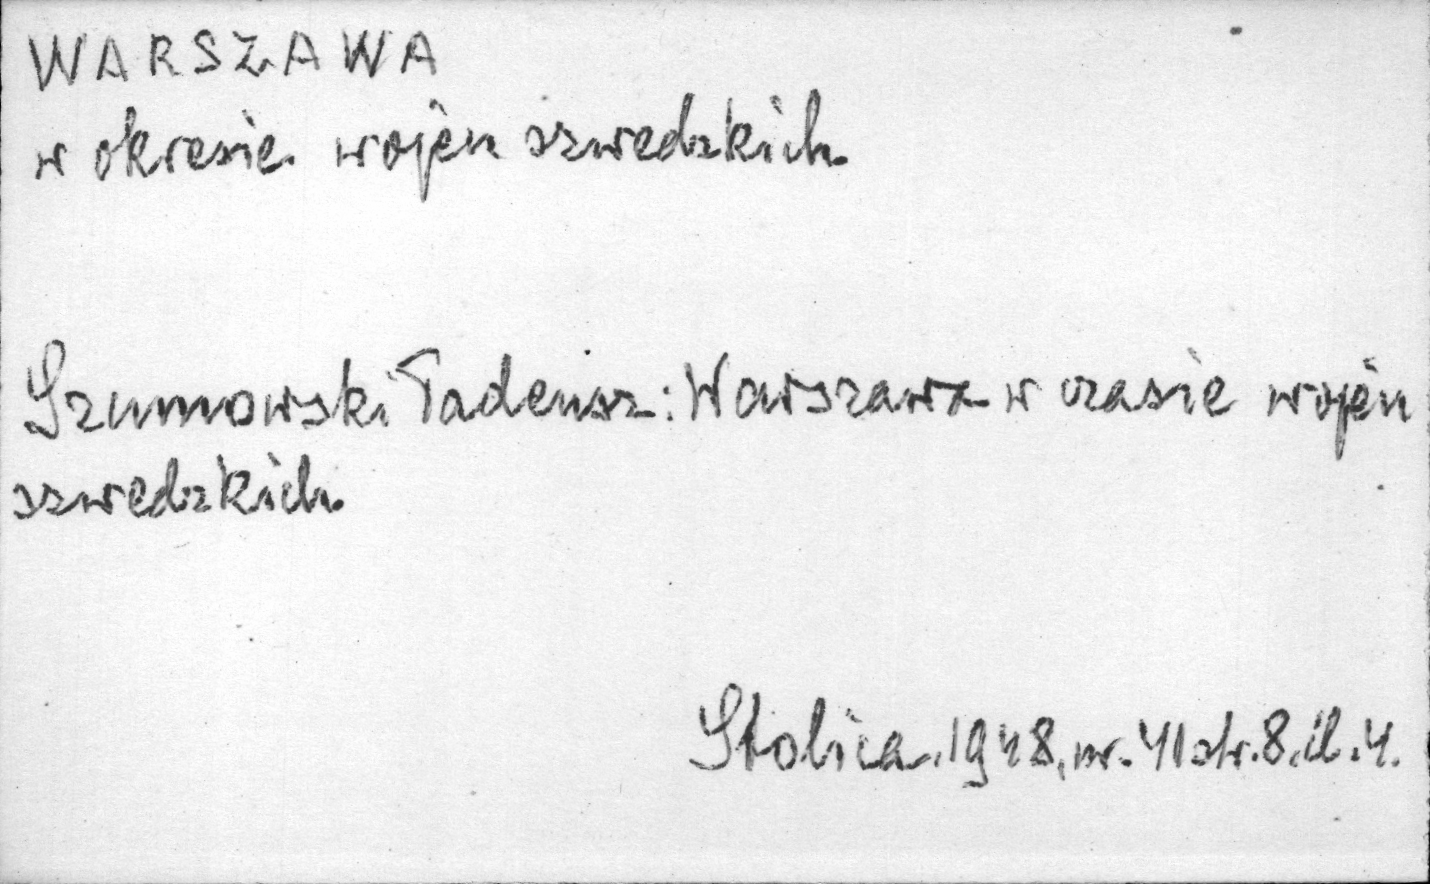 WARSZAWA
w okresie wojen szwedzkich
Szumowski Tadeusz: Warszawa w czasie wojen
szwedzkich.
Stolica. 1948, nr. 41 str. 8. il. 4.